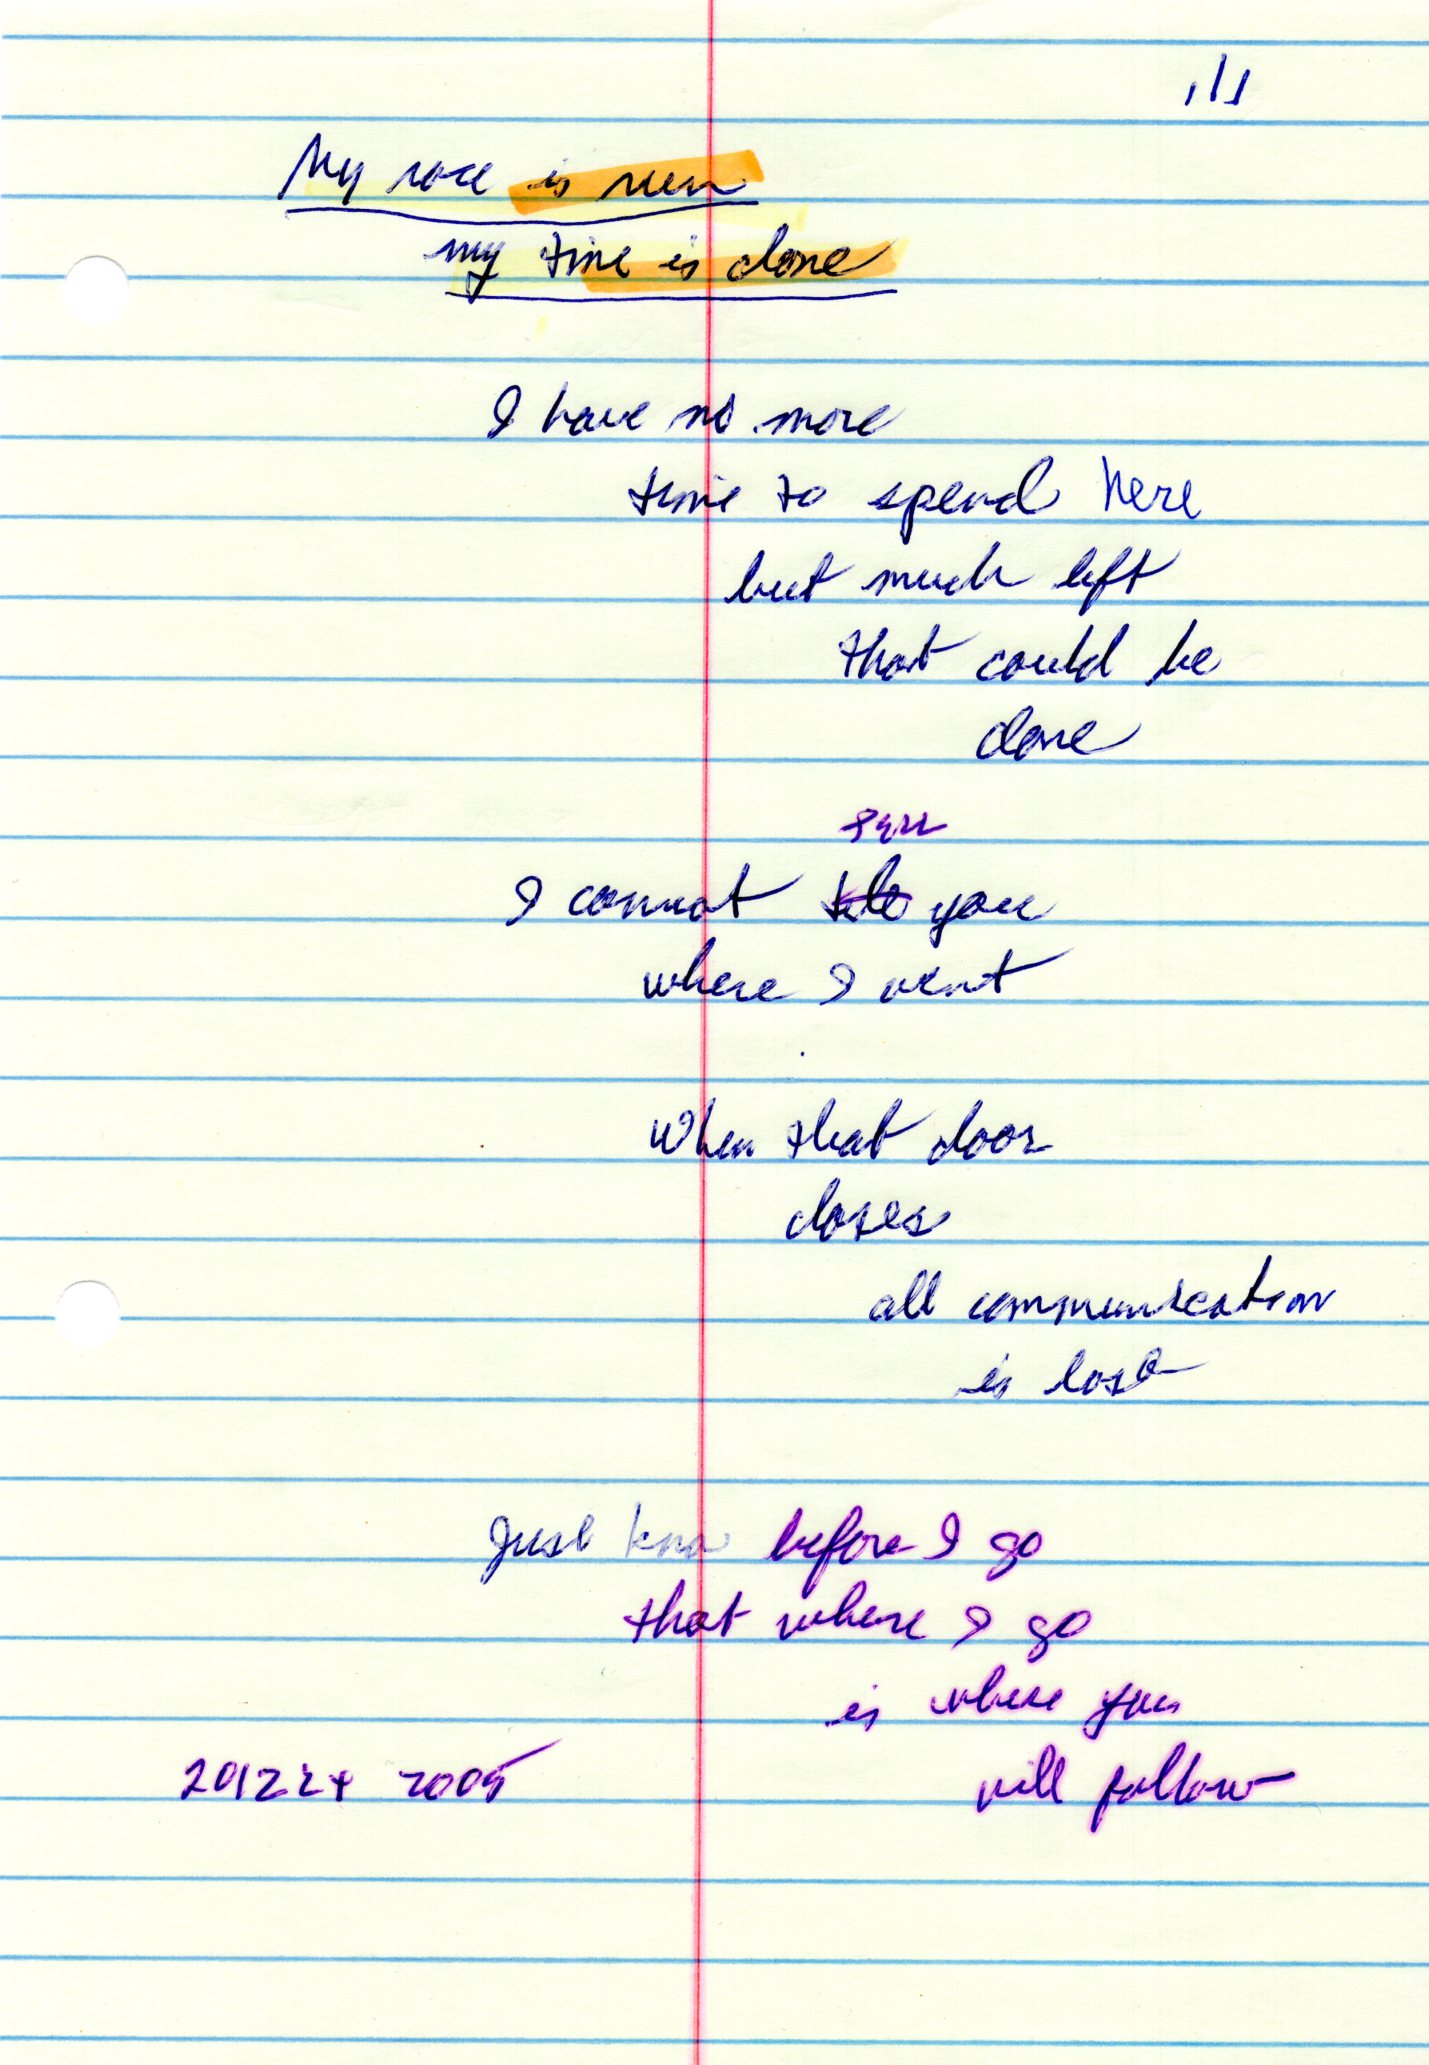 1/1
My race is run
my time is done
I have no more
time to spend here
but much left
that could be
done
tell
I cannot you
where I went
When that door
closes
all communication
is lost
Just kno before I go
that where I go
is where you
will follow
2005